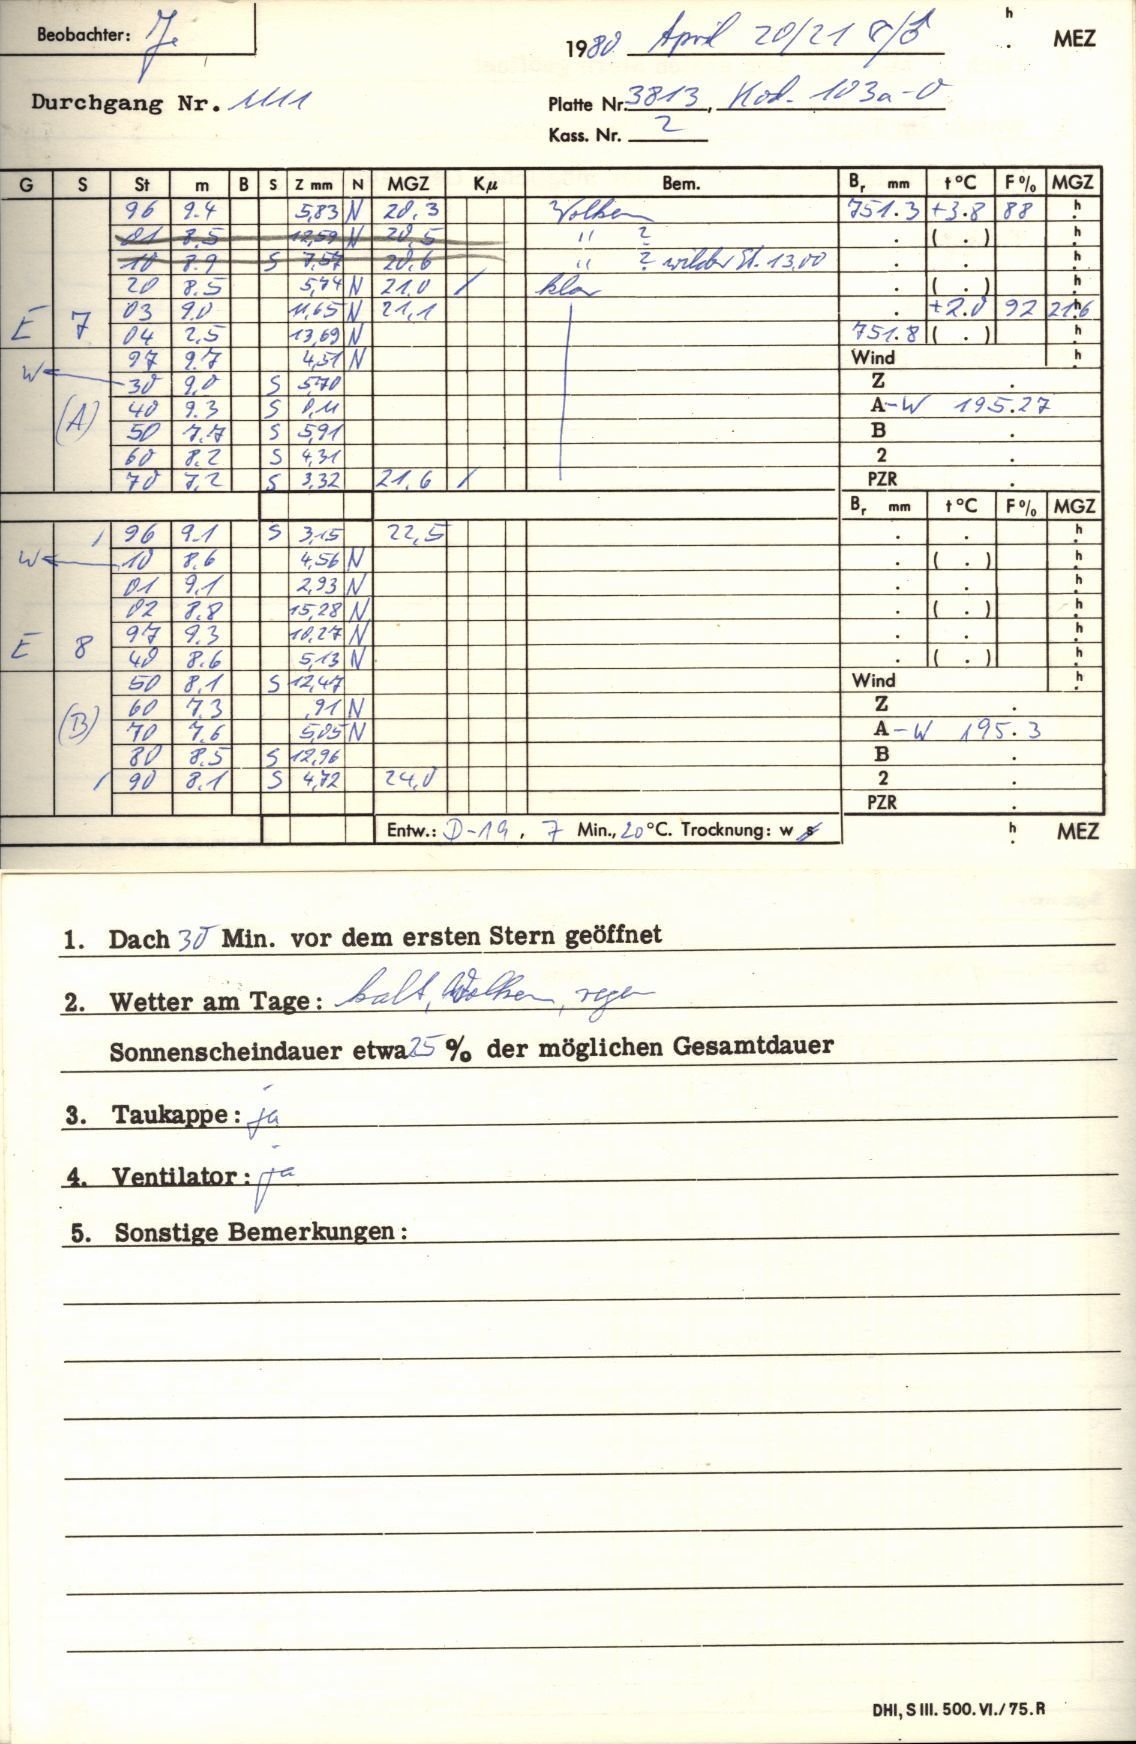 Beobachter: Je
1980 April 20/21 h . MEZ
Durchgang Nr. 1111
Platte Nr. 3813, Kod. 103a-O
Kass. Nr. 2
G S St m B S Z mm N MGZ Kμ Bem. Br mm t°C F% MGZ
96 9.4 5,83 N 20,3 Wolken 751.3 +3.8 88 h
01 8.5 12,59 N 20,5 " ? . ( . ) h
10 8.9 S 7,57 20,6 " ? wilder St. 13,00 . . h
20 8.5 5,74 N 21,0 / klar . ( . ) h
E 7 03 9.0 11,65 N 21,1 . +2.0 92 21h6
04 2.5 13,69 N 751.8 ( . ) h
97 9.7 4,51 N Wind h
W 30 9,0 S 5,70 Z .
(A) 40 9.3 S 0,11 A-W 195.27
50 7.7 S 5,91 B .
60 8.2 S 4,31 2 .
70 7,2 S 3,32 21,6 / PZR .
Br mm t°C F% MGZ
/ 96 9.1 S 3,15 22,5 . . h
W 10 8.6 4,56 N . ( . ) h
01 9,1 2,93 N . . h
02 8.8 15,28 N . ( . ) h
97 9.3 10,27 N . . h
E 8 40 8.6 5,13 N . ( . ) h
50 8,1 S 12,47 Wind h
60 7,3 ,91 N Z .
(B) 70 7,6 5,05 N A-W 195.3
80 8.5 S 12,96 B .
/ 90 8.1 S 4,72 24,0 2 .
PZR .
Entw.: D-19, 7 Min., 20°C. Trocknung: w s h . MEZ
1. Dach 30 Min. vor dem ersten Stern geöffnet
2. Wetter am Tage: kalt, Wolken, regen
Sonnenscheindauer etwa 25 % der möglichen Gesamtdauer
3. Taukappe: ja
4. Ventilator: ja
5. Sonstige Bemerkungen:
DHI, S III. 500. VI./75. R